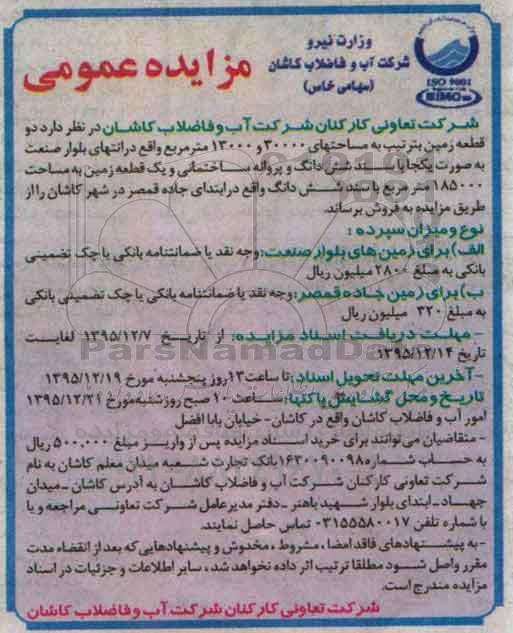 وزارت نیرو
شرکت آب و فاضلاب کاشان
(سهامی خاص)
مزایده عمومی
ISO 9001
شرکت تعاونی کارکنان شرکت آب و فاضلاب کاشان در نظر دارد دو
قطعه زمین بترتیب به مساحتهای ۳۰۰۰۰ و ۱۳۰۰۰ مترمربع واقع درانتهای بلوار صنعت
به صورت یکجا با سند شش دانگ و پروانه ساختمانی و یک قطعه زمین به مساحت
۱۸۵۰۰۰ متر مربع با سند شش دانگ واقع درابتدای جاده قمصر در شهر کاشان را از
طریق مزایده به فروش برساند.
نوع و میزان سپرده :
الف) برای زمین های بلوار صنعت: وجه نقد یا ضمانتنامه بانکی یا چک تضمینی
بانکی به مبلغ ۲۸۰۰ میلیون ریال
ب) برای زمین جاده قمصر: وجه نقد یا ضمانتنامه بانکی یا چک تضمینی بانکی
به مبلغ ۳۲۰ میلیون ریال
- مهلت دریافت اسناد مزایده: از تاریخ ۱۳۹۵/۱۲/۷ لغایت
تاریخ ۱۳۹۵/۱۲/۱۴
- آخرین مهلت تحویل اسناد: تا ساعت ۱۳ روز پنجشنبه مورخ ۱۳۹۵/۱۲/۱۹
تاریخ و محل گشایش پاکتها: ساعت ۱۰ صبح روز شنبه مورخ ۱۳۹۵/۱۲/۲۱
امور آب و فاضلاب کاشان واقع در کاشان - خیابان بابا افضل
- متقاضیان می توانند برای خرید اسناد مزایده پس از واریز مبلغ ۵۰۰,۰۰۰ ریال
به حساب شماره ۱۶۳۰۰۹۰۰۹۸ بانک تجارت شعبه میدان معلم کاشان به نام
شرکت تعاونی کارکنان شرکت آب و فاضلاب کاشان به آدرس کاشان - میدان
جهاد - ابتدای بلوار شهید باهنر - دفتر مدیرعامل شرکت تعاونی مراجعه و یا
با شماره تلفن ۰۳۱۵۵۵۸۰۰۱۷ تماس حاصل نمایند.
- به پیشنهادهای فاقد امضا، مشروط، مخدوش و پیشنهادهایی که بعد از انقضاء مدت
مقرر واصل شود مطلقا ترتیب اثر داده نخواهد شد، سایر اطلاعات و جزئیات در اسناد
مزایده مندرج است.
شرکت تعاونی کارکنان شرکت آب و فاضلاب کاشان
ParsNamadData